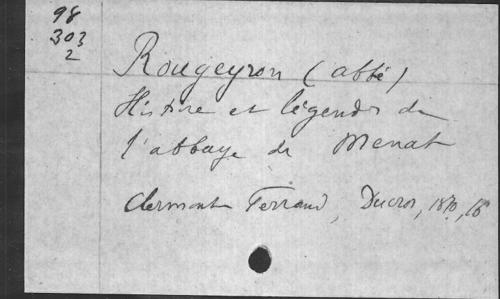 98
303
2
Rougeyron (abbé)
Histoire et légendes de
l'abbaye de Menat
Clermont Ferrand, Ducros, 1870, 16°